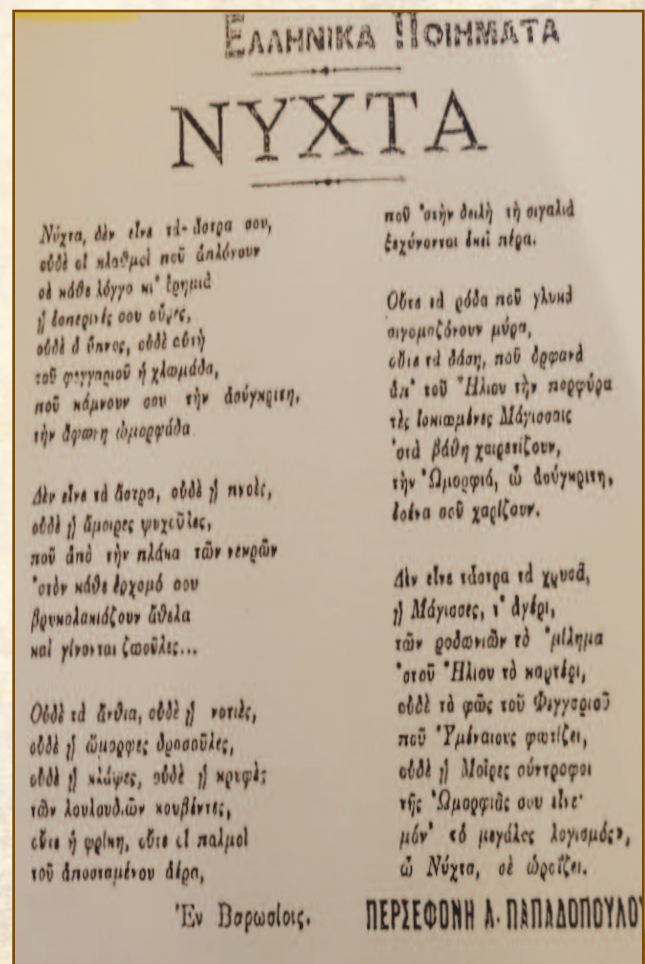 ΕΛΛΗΝΙΚΑ ΠΟΙΗΜΑΤΑ
ΝΥΧΤΑ
Νύχτα, δὲν εἶνε τά· ἄστρα σου,
οὐδὲ οἱ κλαθμοὶ ποῦ ἁπλόνουν
σὲ κάθε λόγγο κι' ἐρημιὰ
ᾑ ἑσπερινές σου οὖρες,
οὐδὲ ὁ ὕπνος, οὐδὲ αὐτὴ
τοῦ φεγγαριοῦ ἡ χλωμάδα,
ποῦ κάμνουν σου τὴν ἀσύγκριτη,
τὴν ἄφωνη ὠμορφάδα
Δὲν εἶνε τὰ ἄστρα, οὐδὲ ᾑ πνοὲς,
οὐδὲ ᾑ ἄμοιρες ψυχοῦλες,
ποῦ ἀπὸ τὴν πλάκα τῶν νεκρῶν
'στὸν κάθε ἐρχομό σου
βρυκολακιάζουν ἄθελα
καὶ γίνονται ζωοῦλες...
Οὐδὲ τὰ ἄνθια, οὐδὲ ᾑ νοτιὲς,
οὐδὲ ᾑ ὤμορφες δροσοῦλες,
οὐδὲ ᾑ κλάψες, οὐδὲ ᾑ κρυφὲς
τῶν λουλουδιῶν κουβέντες,
οὔτε ἡ φρίκη, οὔτε οἱ παλμοὶ
τοῦ ἀποσταμένου ἀέρα,
ποῦ 'στὴν δειλὴ τὴ σιγαλιὰ
ξεχύνονται ἐκεῖ πέρα.
Οὔτε τὰ ρόδα ποῦ γλυκὰ
σιγομαζόνουν μύρα,
οὔτε τὰ δάση, ποῦ ὀρφανὰ
ἀπ' τοῦ Ἥλιου τὴν πορφύρα
τὲς ἰσκιωμένες Μάγισσαις
'στὰ βάθη χαιρετίζουν,
τὴν Ὠμορφιά, ὦ ἀσύγκριτη,
ἐσένα σοῦ χαρίζουν.
Δὲν εἶνε τἄστρα τὰ χρυσᾶ,
ᾑ Μάγισσες, τ' ἀγέρι,
τῶν ροδωνιῶν τὸ 'μίλημα
'στοῦ Ἥλιου τὸ καρτέρι,
οὐδὲ τὸ φῶς τοῦ Φεγγαριοῦ
ποῦ Ὑμέναιους φωτίζει,
οὐδὲ ᾑ Μοῖρες σύντροφοι
τῆς Ὠμορφιᾶς σου εἶνε·
μόν' «ὁ μεγάλος λογισμός»,
ὦ Νύχτα, σὲ ὡραΐζει.
Ἐν Βαρωσίοις.
ΠΕΡΣΕΦΟΝΗ Α. ΠΑΠΑΔΟΠΟΥΛΟΥ